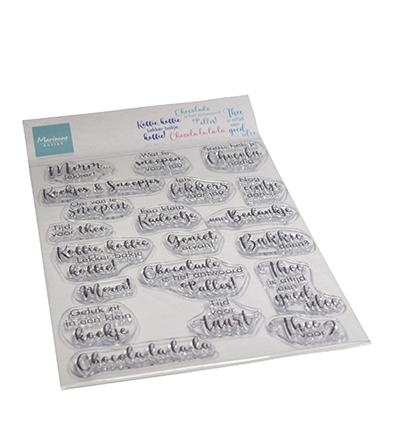 Marianne
DESIGN
Koffie, koffie
lekker bakje
koffie!
Chocolade
is het antwoord
op alles!
Chocolalalala
Thee
is altijd
een
goed
idee
Mmm
Wat te
snoepen
voor jou
Chocola
Koekjes & Snoepjes
Iets
lekkers
voor jou
Nog
eentje
dan
Om van te
snoepen
Een klein
Kadootje
Bedankje
Tijd
voor thee
Koffie, koffie
lekker bakje
koffie!
Geniet
ervan!
Bakkie
Merci!
Chocolade
is het antwoord
op alles!
Thee
is altijd
een
goed idee
Geluk zit
in een klein
koekje
Tijd
voor
taart
Thee
voor 2
Chocolalalala